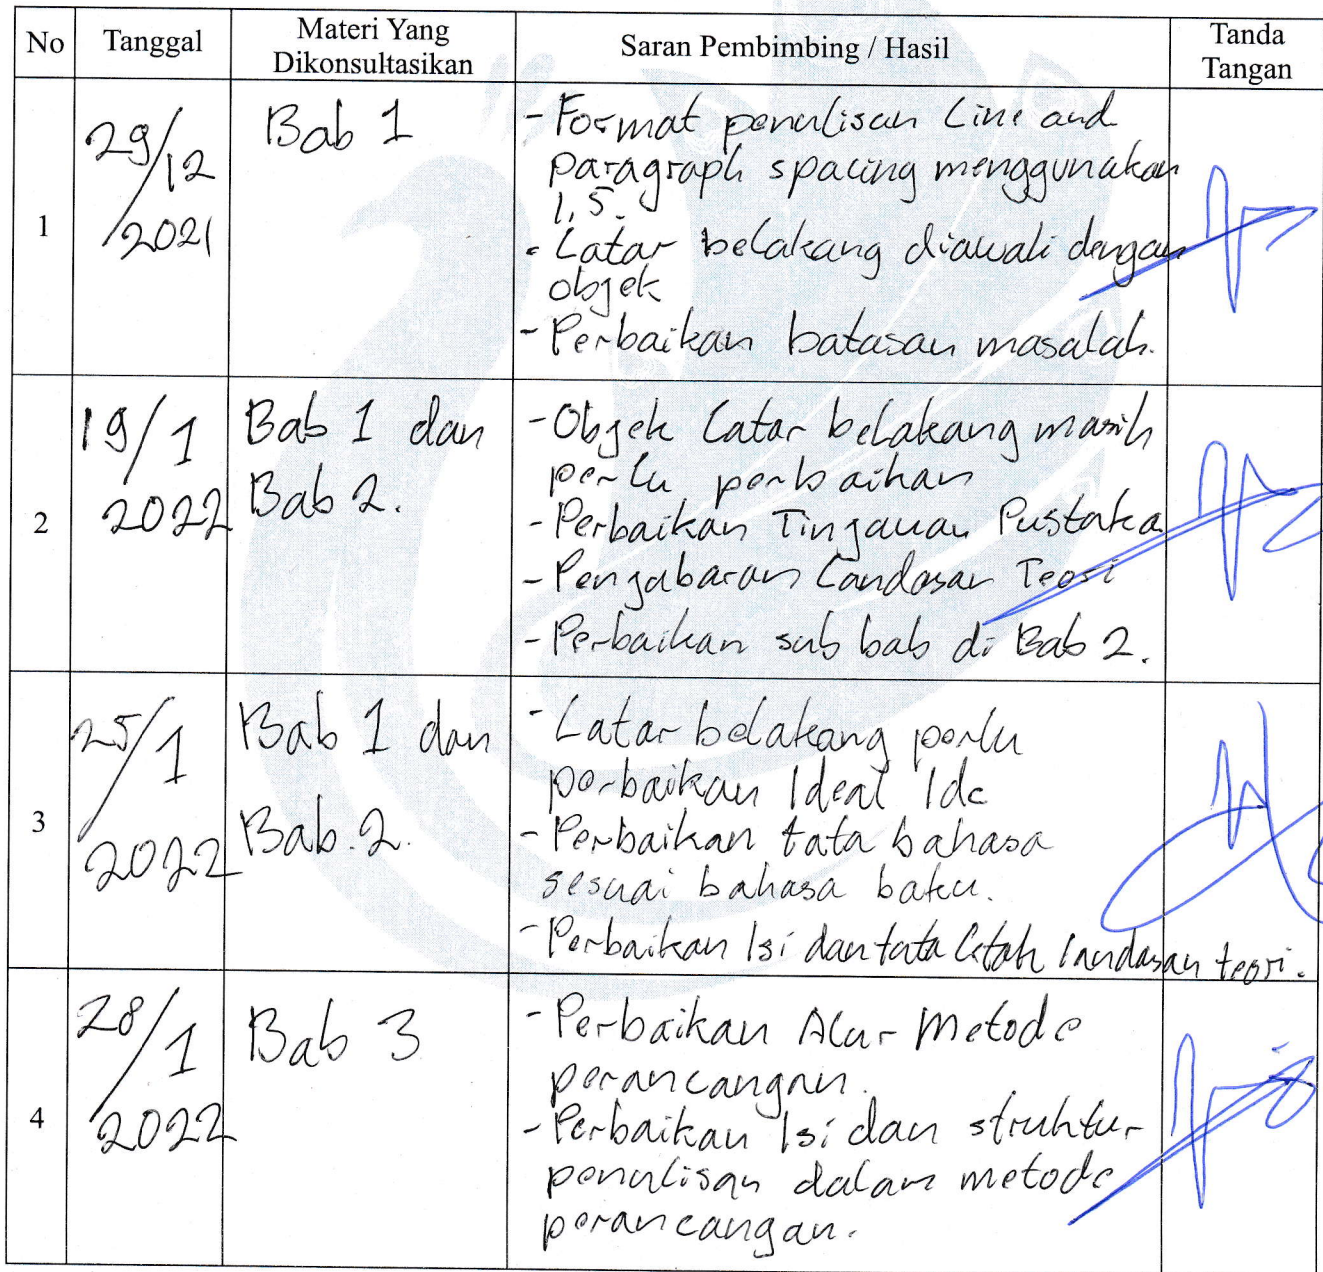 No Tanggal Materi Yang Dikonsultasikan Saran Pembimbing / Hasil Tanda Tangan
1
29/12
2021
Bab 1
- Format penulisan Line and
paragraph spacing menggunakan
1,5.
- Latar belakang diawali dengan
objek
- Perbaikan batasan masalah.
2
19/1
2022
Bab 1 dan
Bab 2.
- Objek Latar belakang masih
perlu perbaikan
- Perbaikan Tinjauan Pustaka
- Penjabaran Landasan Teori
- Perbaikan sub bab di Bab 2.
3
25/1
2022
Bab 1 dan
Bab.2.
- Latar belakang perlu
perbaikan Ideal Ide
- Perbaikan tata bahasa
sesuai bahasa baku.
- Perbaikan Isi dan tata letak landasan teori.
4
28/1
2022
Bab 3
- Perbaikan Alur Metode
perancangan.
- Perbaikan Isi dan struktur
penulisan dalam metode
perancangan.